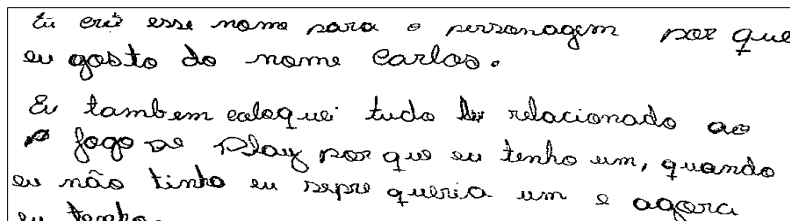 Eu criei esse nome para o personagem por que
eu gosto do nome Carlos.
Eu tambem coloquei tudo relacionado ao
jogo de Play por que eu tenho um, quando
eu não tinha eu sepre queria um e agora
eu tenho.